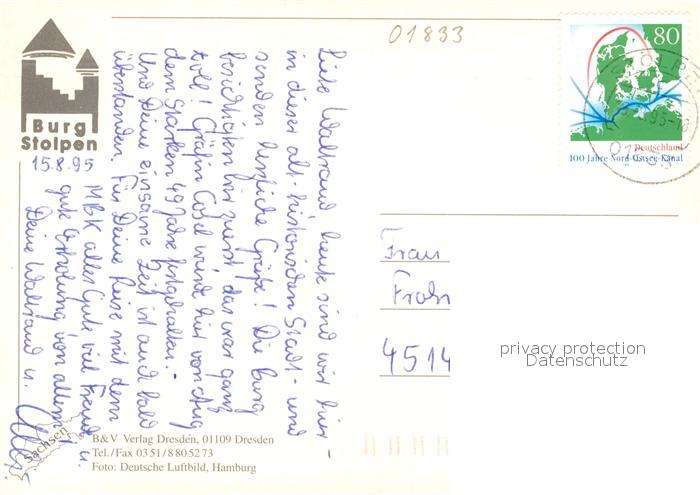 01833
80
Deutschland
100 Jahre Nord-Ostsee-Kanal
Burg
Stolpen
15.8.95
Liebe Waltraud heute sind wir hier -
in dieser alt-historischen Stadt - und
senden herzliche Grüße! Die Burg
besichtigten wir zuerst das war ganz
toll! Gräfin Cosel wurde hier von Aug
dem Starken 49 Jahre festgehalten. -
Und Deine einsame Zeit ist auch bald
überstanden. Für Deine Reise mit dem
MBK alles Gute viel Freude u.
gute Erholung von allem
Deine Waltraud u.
Frau
Froh
4514
privacy protection
Datenschutz
Sachsen
B&V Verlag Dresden, 01109 Dresden
Tel./Fax 0351/8805273
Foto: Deutsche Luftbild, Hamburg